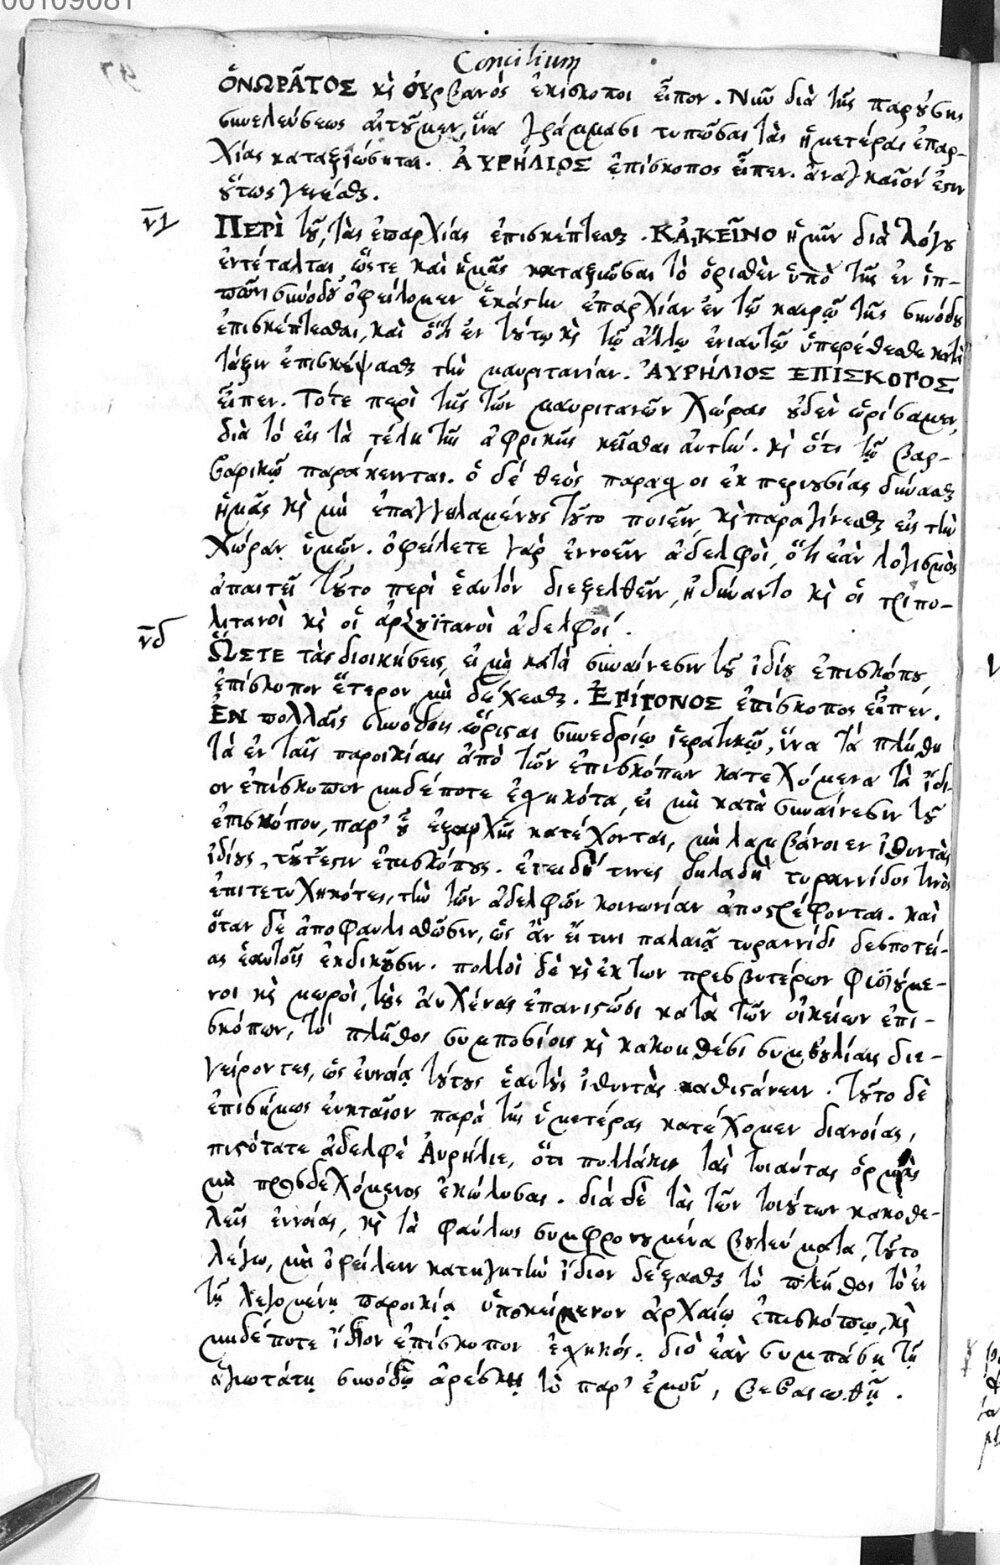 00109081
Concilium
ὉΝΩΡΑ͂ΤΟΣ κὶ ὀυρβανὸς ἐπίσκοποι εἶπον. Νῦν διὰ τῆς παρούσης
συνελεύσεως αἰτοῦμεν, ἵνα γράμμασι τυπῶσαι τὰς ἡμετέρας ἐπαρ-
χίας καταξιώσηται. ἈΥΡΉΛΙΟΣ ἐπίσκοπος εἶπεν. ἀναγκαῖον ἐστιν
οὕτως γενέσθαι.
νγ ΠΕΡῚ τοῦ, τὰς ἐπαρχίας ἐπισκέπτεσθαι. ΚᾺΚΕΙ͂ΝΟ ἡμῖν διὰ λόγου
ἐντέταλται, ὥστε καὶ ἡμᾶς καταξιῶσαι τὸ ὁρισθὲν ὑπὸ τῆς ἐν ἱπ-
πῶνι συνόδου ὀφείλομεν ἑκάστην ἐπαρχίαν ἐν τῷ καιρῷ τῆς συνόδου
ἐπισκέπτεσθαι, καὶ ὅτι ἐν τούτῳ κὶ τῷ ἄλλῳ ἐνιαυτῷ ὑπερέθεσθε κατὰ
τάξιν ἐπισκέψασθαι τὴν μαυριτανίαν. ἈΥΡΉΛΙΟΣ ἘΠΙΣΚΟΠΟΣ
εἶπεν. Τότε περὶ τῆς τῶν μαυριτανῶν χώρας οὐδὲν ὡρίσαμεν,
διὰ τὸ εἰς τὰ τέλη τῆς ἀφρικῆς κεῖσθαι αὐτήν. κὶ ὅτι τῷ βαρ-
βαρικῷ παράκεινται. ὁ δὲ θεὸς παράσχοι ἐκ περιουσίας δύνασθαι
ἡμᾶς κὶ μὴ ἐπαγγειλαμένους τοῦτο ποιεῖν κὶ παραγίνεσθαι εἰς τὴν
χώραν ὑμῶν. ὀφείλετε γὰρ ἐννοεῖν ἀδελφοὶ, ὅτι ἐὰν λογισμὸς
ἀπαιτεῖ τοῦτο περὶ ἑαυτὸν διεξελθεῖν, ἠδύναντο κὶ οἱ τριπο-
λιτανοὶ κὶ οἱ ἀρζουϊτανοὶ ἀδελφοί.
νδ ὭΣΤΕ τὰς διοικήσεις, εἰ μὴ κατὰ συναίνεσιν τοῦ ἰδίου ἐπισκόπου,
ἐπίσκοπον ἕτερον μὴ δέχεσθαι. ἘΠΊΓΟΝΟΣ ἐπίσκοπος εἶπεν.
ἘΝ πολλαῖς συνόδοις ὥρισται συνεδρίῳ ἱερατικῷ, ἵνα τὰ πλήθη
τὰ ἐν ταῖς παροικίαις ἀπὸ τῶν ἐπισκόπων κατεχόμενα τὰ ἴδι-
ον ἐπίσκοπον μηδέποτε ἐσχηκότα, εἰ μὴ κατὰ συναίνεσιν τοῦ
ἐπισκόπου, παρ' οὗ ἐξαρχῆς κατέχονται, μὴ λαμβάνοιεν ἰθυντὰς
ἰδίους, τοῦτεστιν ἐπισκόπους. ἐπειδή τινες δηλαδὴ τυραννίδος τινὸς
ἐπιτετυχηκότες, τὴν τῶν ἀδελφῶν κοινωνίαν ἀποστρέφονται. καὶ
ὅταν δὲ ἀποφαυλισθῶσιν, ὡς ἂν εἴ τινι παλαιᾷ τυραννίδι δεσποτεί-
ας ἑαυτοῖς ἐκδικοῦσιν. πολλοὶ δὲ κὶ ἐκ των πρεσβυτέρων φυσιούμε-
νοι κὶ μωροὶ, τοὺς αὐχένας ἐπανιστῶσι κατὰ τῶν οἰκείων ἐπι-
σκόπων, τὸ πλῆθος συμποσίοις κὶ κακοήθεσι συμβουλίαις διε-
γείροντες, ὡς εὐνοίᾳ τούτους ἑαυτοῖς ἰθυντὰς καθιστάνειν. τοῦτο δὲ
ἐπισήμως εὐκταῖον παρὰ τῆς ὑμετέρας κατέχομεν διανοίας,
πιστότατε ἀδελφὲ Αὐρήλιε, ὅτι πολλάκις τὰς τοιαύτας ὁρμὰς
μὴ προσδεχόμενος ἐκώλυσας. διὰ δὲ τὰς τῶν τοιούτων κακοθε-
λεῖς ἐννοίας, κὶ τὰ φαύλως συμφρονούμενα βουλεύματα, τοῦτο
λέγω, μὴ ὀφείλειν καθηγητὴν ἴδιον δέξασθαι τὸ πλῆθος τὸ ἐν
τῇ λεγομένῃ παροικίᾳ ὑποκείμενον ἀρχαίῳ ἐπισκόπῳ, κὶ
μηδέποτε ἴδιον ἐπίσκοπον ἐσχηκός. διὸ ἐὰν συμπάσῃ τῇ
ἁγιωτάτῃ συνόδῳ ἀρέσκῃ τὸ παρ' ἐμοῦ, βεβαιωθῇ.